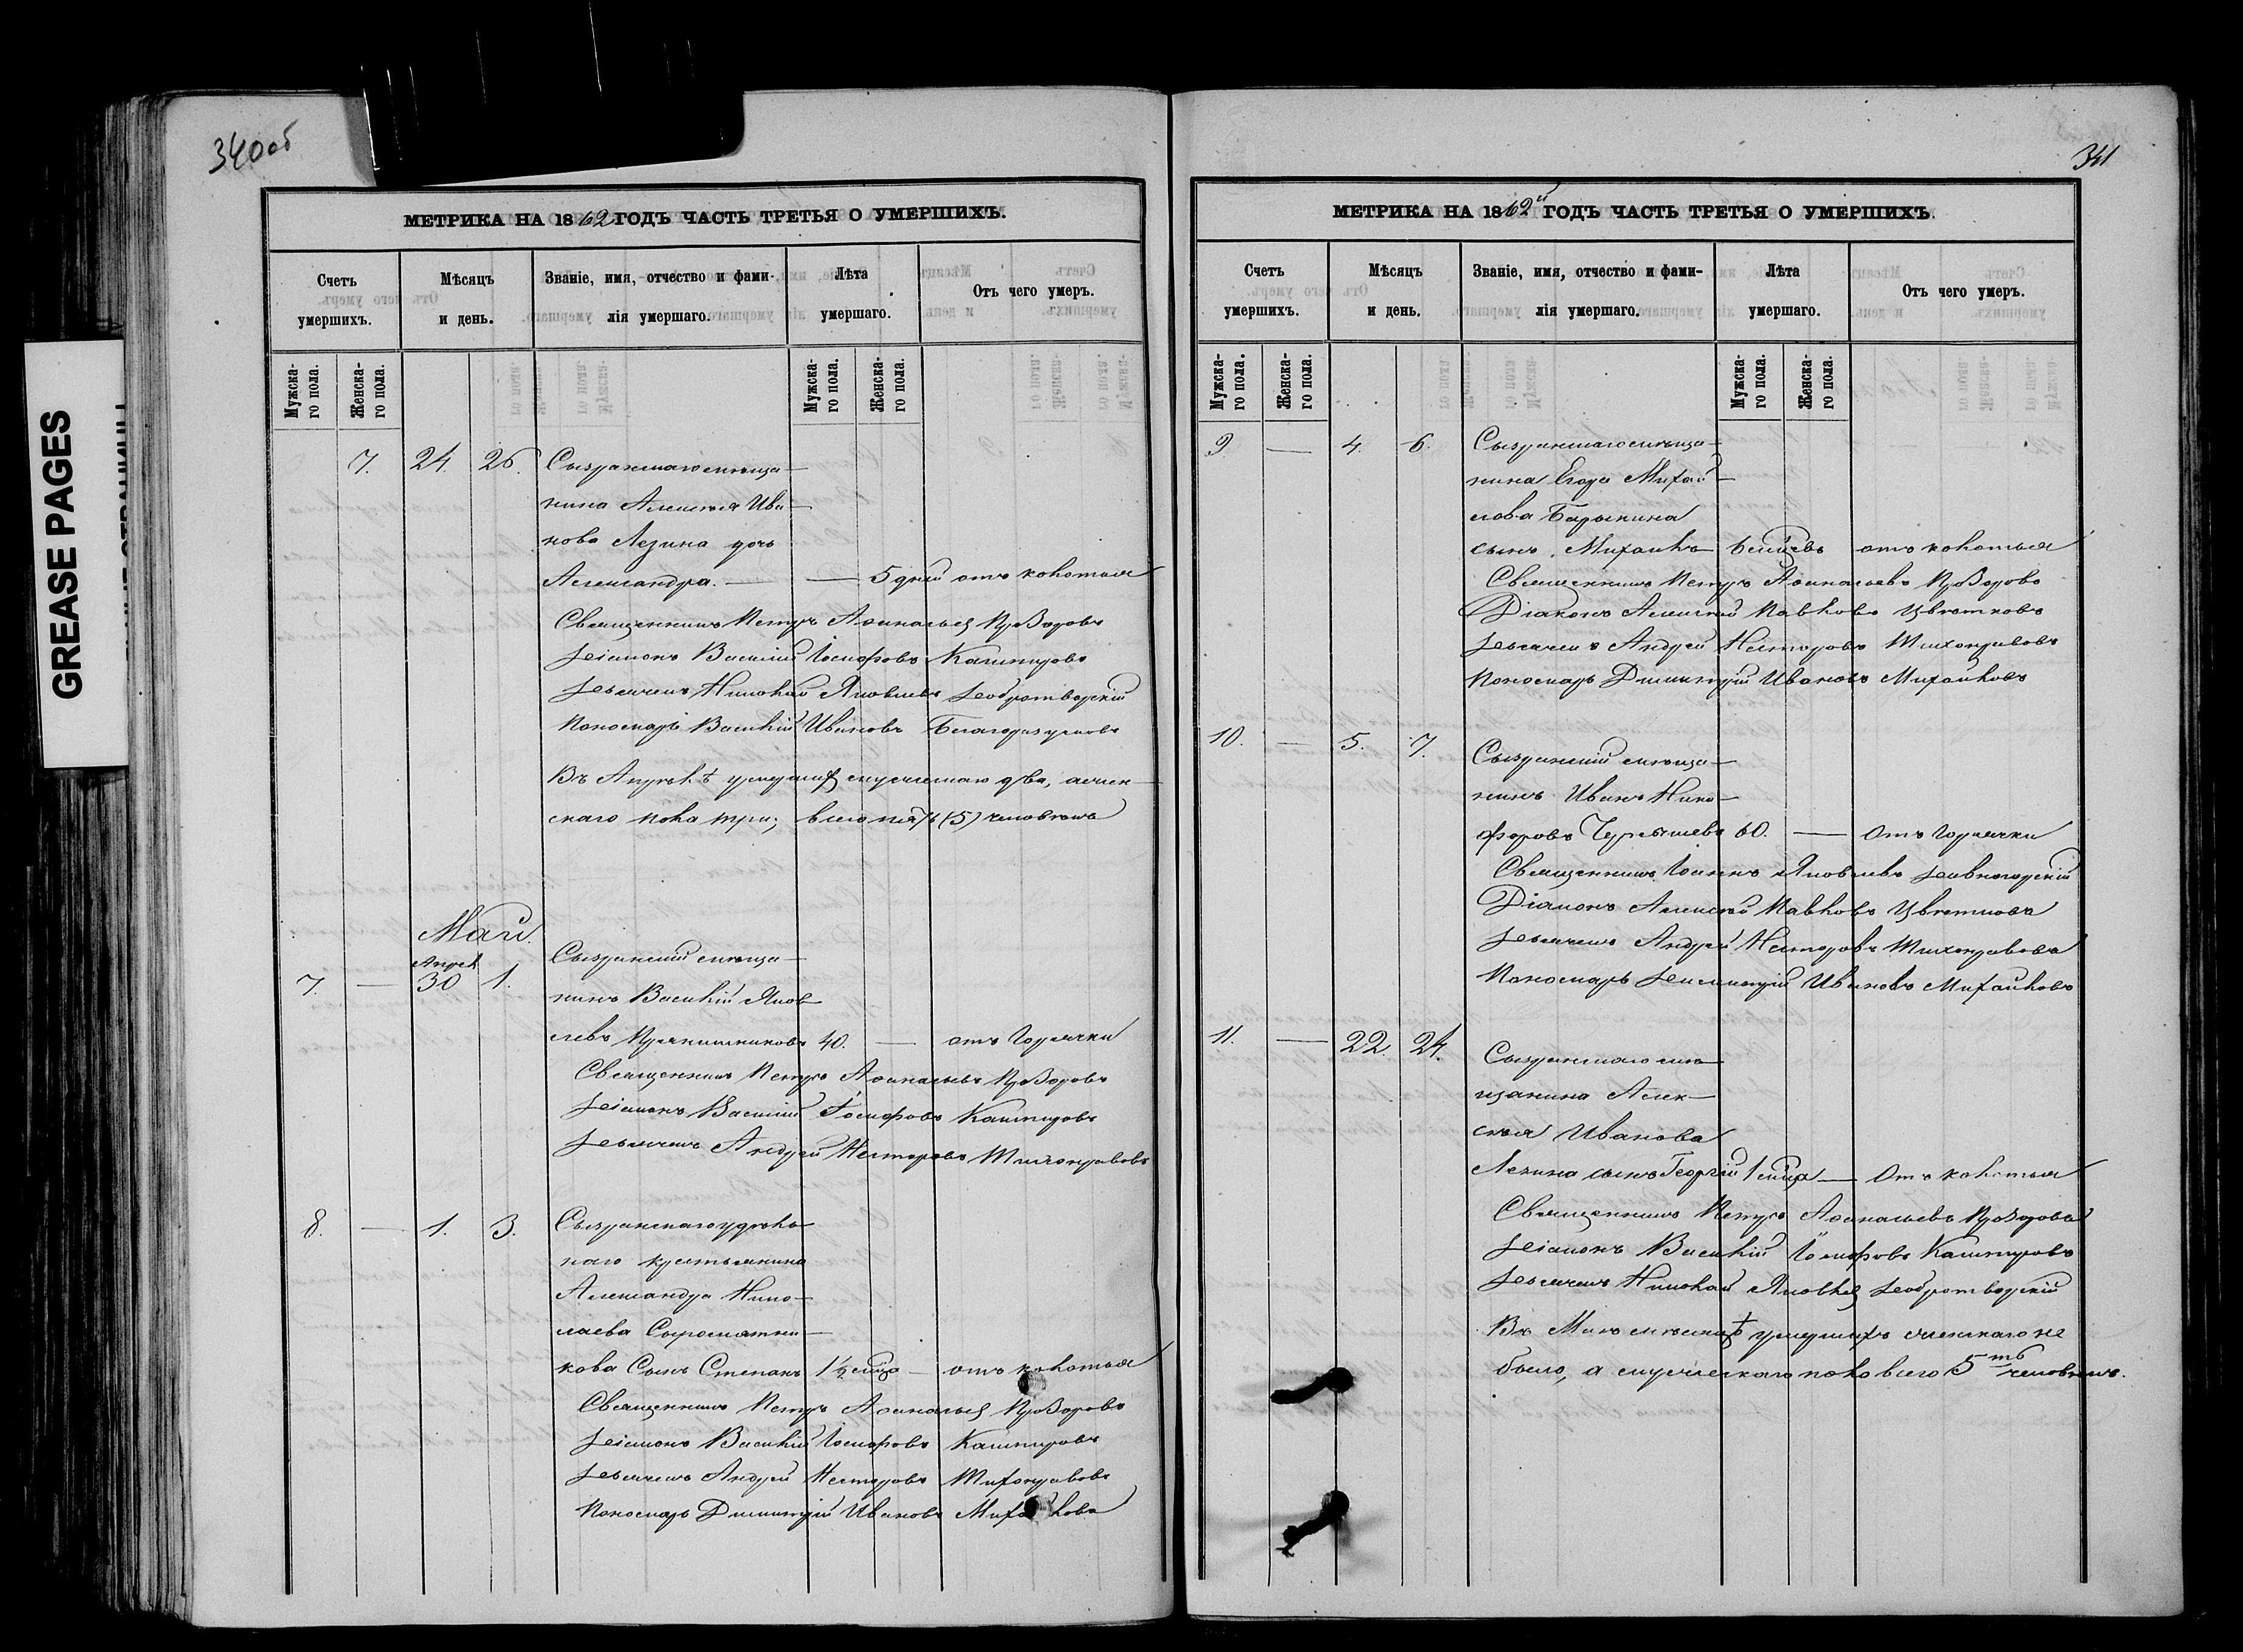 GREASE PAGES
340об
МЕТРИКА НА 1862 ГОДЪ ЧАСТЬ ТРЕТЬЯ О УМЕРШИХЪ.
Счетъ умершихъ.
Мѣсяцъ и день.
Званіе, имя, отчество и фамилія умершаго.
Лѣта умершаго.
Отъ чего умеръ.
Мужска-го пола.
Женска-го пола.
Мужска-го пола.
Женска-го пола.
7. 24. 26. Сызранскаго мѣща-
нина Алексѣя Ива-
нова Лезина дочь
Александра. — — 5 дней отъ колотья
Священникъ Петръ Аѳанасьев Прозоровъ
Діаконъ Василій Іосифовъ Кашпировъ
Дьячекъ Николай Яковлевъ Добротворскій
Пономарь Василій Ивановъ Благоразумовъ
Въ Апрѣлѣ умершихъ мужескаго два, а жен-
скаго пола три; всего пять (5) человѣкъ
Май.
Апрел
7. — 30 1. Сызранскій мѣща-
нинъ Василій Яков-
левъ Прянишниковъ 40. — отъ горячки
Священникъ Петръ Аѳанасьевъ Прозоровъ
Діаконъ Василій Іосифовъ Кашпировъ
Дьячекъ Андрей Несторовъ Тихонравовъ
8. — 1. 3. Сызранскаго удѣль-
наго крестьянина
Александра Нико-
лаева Сыромятни-
кова Сынъ Степанъ 1½ мѣца — отъ колотья
Священникъ Петръ Аѳанасьев Прозоровъ
Діаконъ Василій Іосифовъ Кашпировъ
Дьячекъ Андрей Несторовъ Тихонравовъ
Пономарь Димитрій Ивановъ Михайловъ
341
МЕТРИКА НА 1862й ГОДЪ ЧАСТЬ ТРЕТЬЯ О УМЕРШИХЪ.
Счетъ умершихъ.
Мѣсяцъ и день.
Званіе, имя, отчество и фамилія умершаго.
Лѣта умершаго.
Отъ чего умеръ.
Мужска-го пола.
Женска-го пола.
Мужска-го пола.
Женска-го пола.
9 — 4. 6. Сызранскаго мѣща-
нина Егора Михай-
лова Барыкина
сынъ Михаилъ 6 мѣцевъ отъ колотья
Священникъ Петръ Аѳанасьевъ Прозоровъ
Діаконъ Алексѣй Павловъ Цвѣтковъ
Дьячекъ Андрей Несторовъ Тихонравовъ
Пономарь Димитрій Ивановъ Михайловъ
10. — 5. 7. Сызранскій мѣща-
нинъ Иванъ Ники-
форовъ Чернышевъ 60. — Отъ горячки
Священникъ Іоаннъ Яковлевъ Дивногорскій
Діаконъ Алексѣй Павловъ Цвѣтковъ
Дьячекъ Андрей Несторовъ Тихонравовъ
Пономарь Димитрій Ивановъ Михайловъ
11. — 22. 24. Сызранскаго мѣ-
щанина Алек-
сѣя Иванова
Лезина сынъ Георгій 1 мѣца — Отъ колотья
Священникъ Петръ Аѳанасьевъ Прозоровъ
Діаконъ Василій Іосифовъ Кашпировъ
Дьячекъ Николай Яковлев Добротворскій
Въ Маѣ мѣсяцѣ умершихъ женскаго не
было, а мужескаго пола всего 5ть человѣкъ.